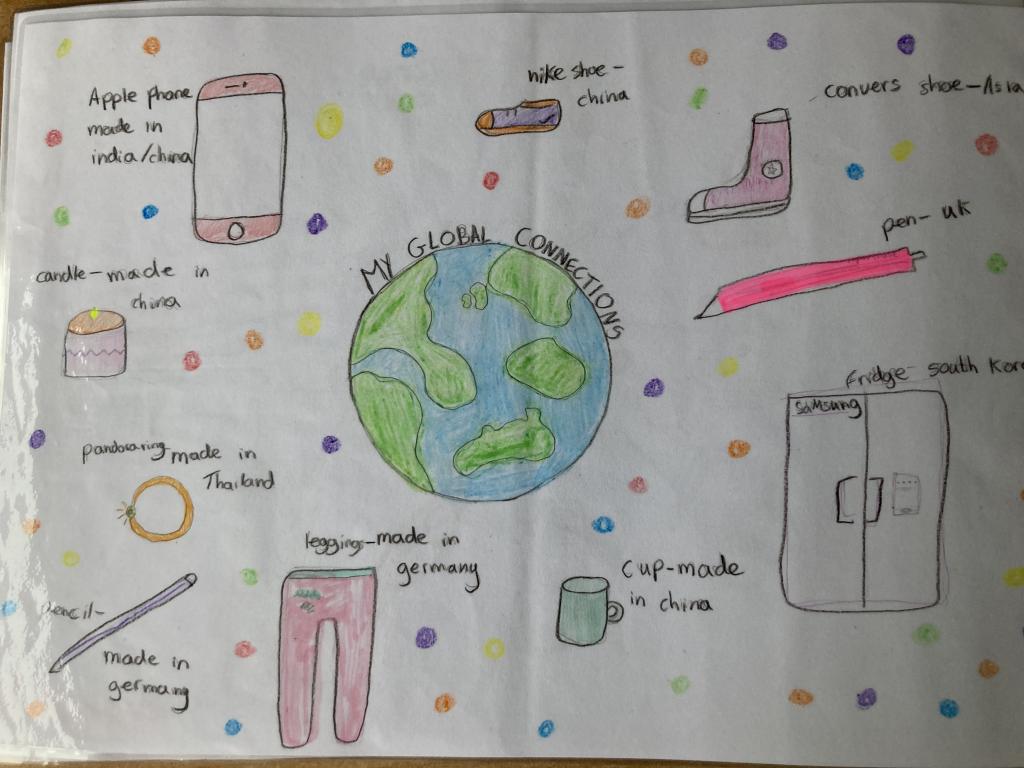 Apple phone
made in
india/china
nike shoe-
china
convers shoe-Asia
pen- uk
MY GLOBAL CONNECTIONS
candle-made in
china
fridge- south Kor
SAMSUNG
pandoraring made in
Thailand
leggings-made in
germany
cup-made
in china
pencil-
made in
germany